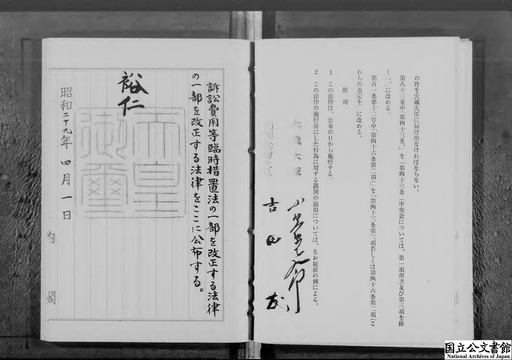 の旨を大蔵大臣に届け出なければならない。
第八十三条中「第四十三条、」を「第四十三条(中央会については、第一項但書及び第三項を除
く。)」に改める。
第百一条第十二号中「第四十六条第二項」を「第四十三条第三項若しくは第四十六条第二項(こ
れらの規定を」に改める。
附則
1 この法律は、公布の日から施行する。
2 この法律の施行前にした行為に対する罰則の適用については、なお従前の例による。
吉田茂
訴訟費用等臨時措置法の一部を改正する法律
の一部を改正する法律をここに公布する。
裕仁
天皇
御璽
昭和二十九年四月一日
内閣
国立公文書館
National Archives of Japan